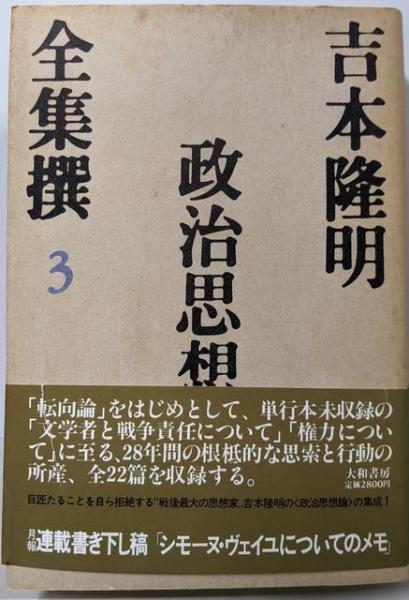 吉本隆明
政治思想
全集撰
3
「転向論」をはじめとして、単行本未収録の
「文学者と戦争責任について」「権力につい
て」に至る、28年間の根柢的な思索と行動の
所産、全22篇を収録する。
大和書房
定価2800円
巨匠たることを自ら拒絶する"戦後最大の思想家"吉本隆明の〈政治思想論〉の集成!
月報 連載書き下し稿「シモーヌ・ヴェイユについてのメモ」